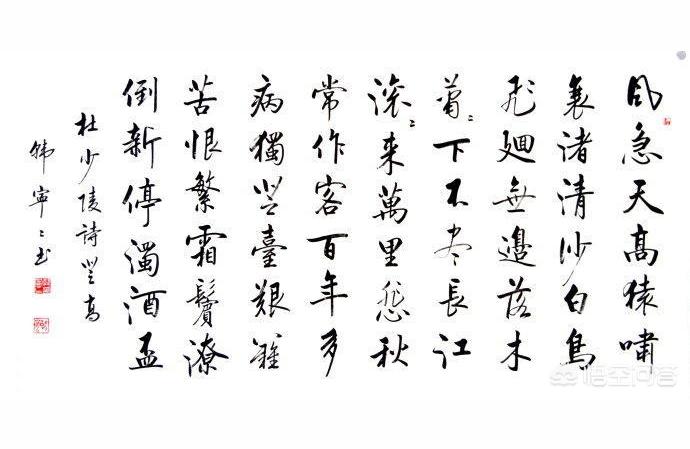 風急天高猿嘯
哀渚清沙白鳥
飛廻無邊落木
蕭〻下不盡長江
滚〻來萬里悲秋
常作客百年多
病獨登臺艱難
苦恨繁霜鬢潦
倒新停濁酒盃
杜少陵詩登高
韓寧〻書
悟空问答